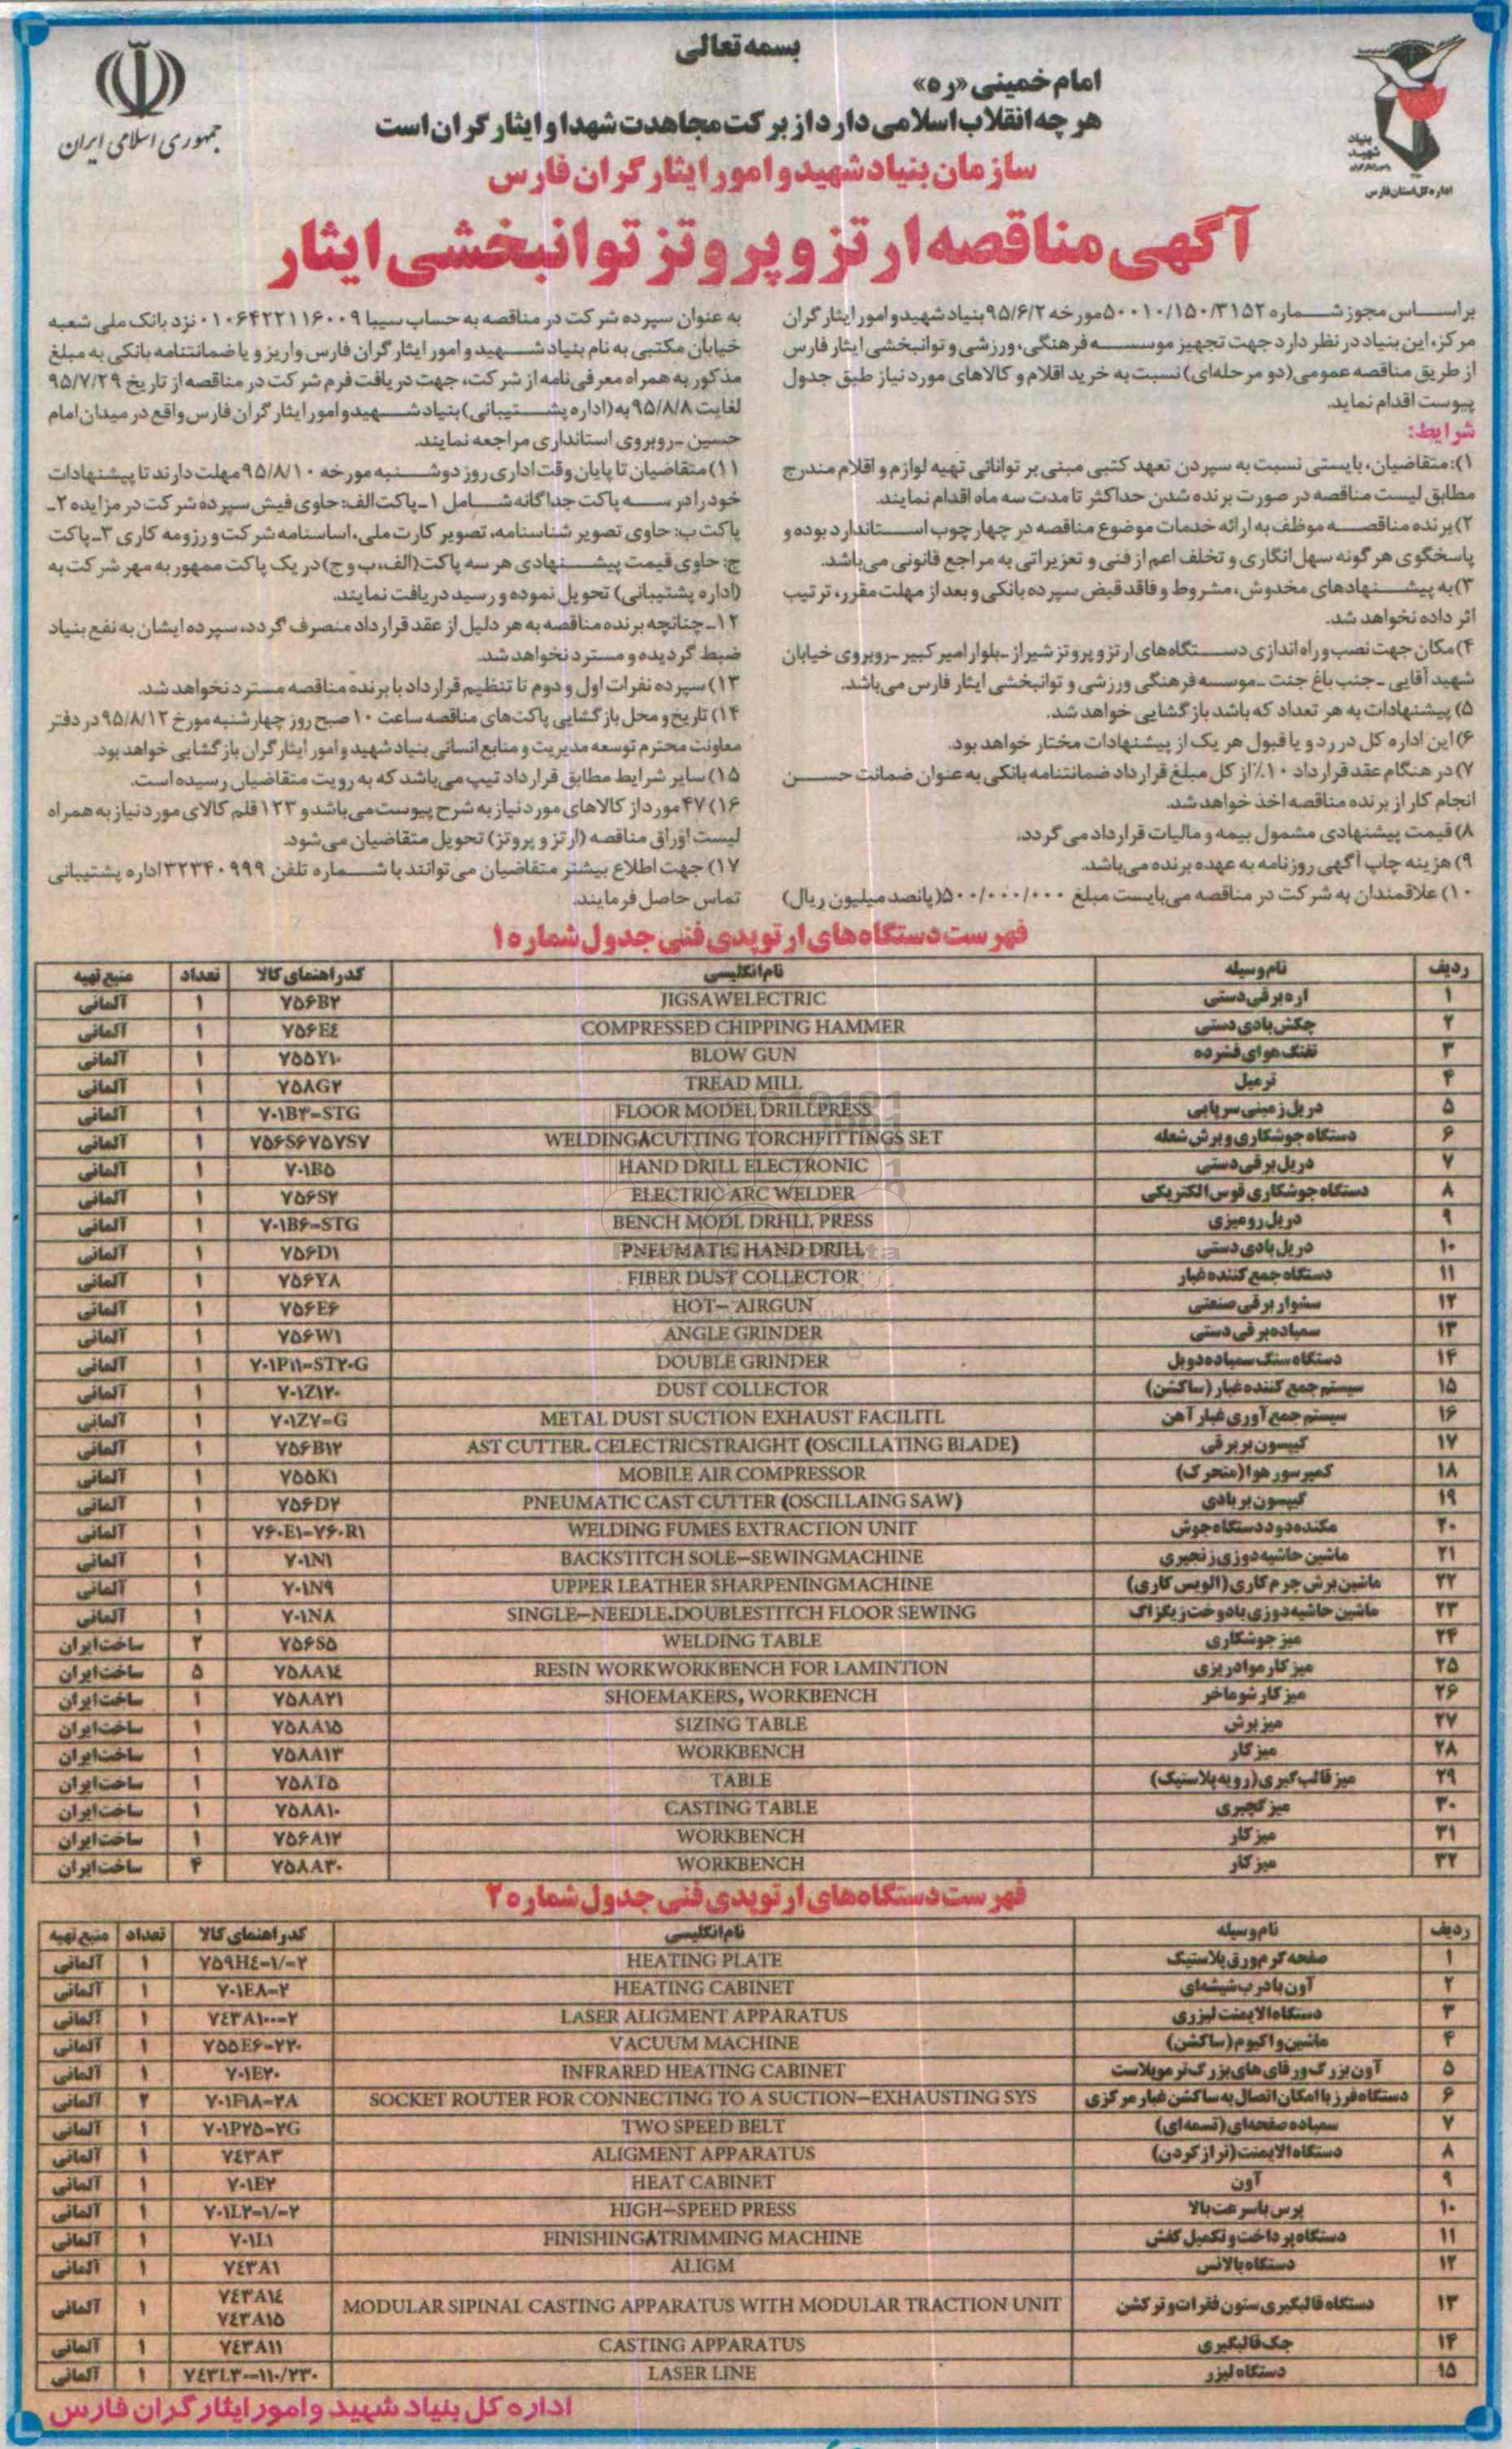 بسمه تعالی
امام خمینی «ره»
هر چه انقلاب اسلامی دارد از برکت مجاهدت شهدا و ایثارگران است
سازمان بنیاد شهید و امور ایثارگران فارس
آگهی مناقصه ارتز و پروتز توانبخشی ایثار
جمهوری اسلامی ایران
بنیاد
شهید
و امور ایثارگران
اداره کل استان فارس
براساس مجوز شماره ۵۰۰۱۰/۱۵۰/۳۱۵۲ مورخه ۹۵/۶/۲ بنیاد شهید و امور ایثارگران
مرکز، این بنیاد در نظر دارد جهت تجهیز موسسه فرهنگی، ورزشی و توانبخشی ایثار فارس
از طریق مناقصه عمومی (دو مرحله‌ای) نسبت به خرید اقلام و کالاهای مورد نیاز طبق جدول
پیوست اقدام نماید.
شرایط:
۱): متقاضیان، بایستی نسبت به سپردن تعهد کتبی مبنی بر توانائی تهیه لوازم و اقلام مندرج
مطابق لیست مناقصه در صورت برنده شدن حداکثر تا مدت سه ماه اقدام نمایند.
۲) برنده مناقصه موظف به ارائه خدمات موضوع مناقصه در چهارچوب استاندارد بوده و
پاسخگوی هر گونه سهل‌انگاری و تخلف اعم از فنی و تعزیراتی به مراجع قانونی می‌باشد.
۳) به پیشنهادهای مخدوش، مشروط و فاقد قبض سپرده بانکی و بعد از مهلت مقرر، ترتیب
اثر داده نخواهد شد.
۴) مکان جهت نصب و راه‌اندازی دستگاه‌های ارتز و پروتز شیراز ـ بلوار امیرکبیر ـ روبروی خیابان
شهید آقایی ـ جنب باغ جنت ـ موسسه فرهنگی ورزشی و توانبخشی ایثار فارس می‌باشد.
۵) پیشنهادات به هر تعداد که باشد بازگشایی خواهد شد.
۶) این اداره کل در رد و یا قبول هر یک از پیشنهادات مختار خواهد بود.
۷) در هنگام عقد قرارداد ۱۰٪ از کل مبلغ قرارداد ضمانتنامه بانکی به عنوان ضمانت حسن
انجام کار از برنده مناقصه اخذ خواهد شد.
۸) قیمت پیشنهادی مشمول بیمه و مالیات قرارداد می گردد.
۹) هزینه چاپ آگهی روزنامه به عهده برنده می‌باشد.
۱۰) علاقمندان به شرکت در مناقصه می‌بایست مبلغ ۵۰۰/۰۰۰/۰۰۰ (پانصد میلیون ریال)
به عنوان سپرده شرکت در مناقصه به حساب سیبا ۰۱۰۶۴۲۲۱۱۶۰۰۹ نزد بانک ملی شعبه
خیابان مکتبی به نام بنیاد شهید و امور ایثارگران فارس واریز و یا ضمانتنامه بانکی به مبلغ
مذکور به همراه معرفی‌نامه از شرکت، جهت دریافت فرم شرکت در مناقصه از تاریخ ۹۵/۷/۲۹
لغایت ۹۵/۸/۸ به (اداره پشتیبانی) بنیاد شهید و امور ایثارگران فارس واقع در میدان امام
حسین ـ روبروی استانداری مراجعه نمایند.
۱۱) متقاضیان تا پایان وقت اداری روز دوشنبه مورخه ۹۵/۸/۱۰ مهلت دارند تا پیشنهادات
خود را در سه پاکت جداگانه شامل ۱ـ پاکت الف: حاوی فیش سپرده شرکت در مزایده ۲ـ
پاکت ب: حاوی تصویر شناسنامه، تصویر کارت ملی، اساسنامه شرکت و رزومه کاری ۳ـ پاکت
ج: حاوی قیمت پیشنهادی هر سه پاکت (الف، ب و ج) در یک پاکت ممهور به مهر شرکت به
(اداره پشتیبانی) تحویل نموده و رسید دریافت نمایند.
۱۲ـ چنانچه برنده مناقصه به هر دلیل از عقد قرارداد منصرف گردد، سپرده ایشان به نفع بنیاد
ضبط گردیده و مسترد نخواهد شد.
۱۳) سپرده نفرات اول و دوم تا تنظیم قرارداد با برنده مناقصه مسترد نخواهد شد.
۱۴) تاریخ و محل بازگشایی پاکت‌های مناقصه ساعت ۱۰ صبح روز چهارشنبه مورخ ۹۵/۸/۱۲ در دفتر
معاونت محترم توسعه مدیریت و منابع انسانی بنیاد شهید و امور ایثارگران بازگشایی خواهد بود.
۱۵) سایر شرایط مطابق قرارداد تیپ می‌باشد که به رویت متقاضیان رسیده است.
۱۶) ۴۷ مورد از کالاهای مورد نیاز به شرح پیوست می‌باشد و ۱۲۳ قلم کالای مورد نیاز به همراه
لیست اوراق مناقصه (ارتز و پروتز) تحویل متقاضیان می‌شود.
۱۷) جهت اطلاع بیشتر متقاضیان می‌توانند با شماره تلفن ۳۲۳۴۰۹۹۹ اداره پشتیبانی
تماس حاصل فرمایند.
فهرست دستگاه‌های ارتوپدی فنی جدول شماره ۱
ردیف نام وسیله نام انگلیسی کد راهنمای کالا تعداد منبع تهیه
۱ اره برقی دستی JIGSAWELECTRIC ۷۵۶B۲ ۱ آلمانی
۲ چکش بادی دستی COMPRESSED CHIPPING HAMMER ۷۵۶E٤ ۱ آلمانی
۳ تفنگ هوای فشرده BLOW GUN ۷۵۵Y۱۰ ۱ آلمانی
۴ ترمیل TREAD MILL ۷۵۸G۲ ۱ آلمانی
۵ دریل زمینی سرپایی FLOOR MODEL DRILLPRESS ۷۰۱B۳=STG ۱ آلمانی
۶ دستگاه جوشکاری و برش شعله WELDING&CUTTING TORCHFITTINGS SET ۷۵۶S۶۷۵۷S۷ ۱ آلمانی
۷ دریل برقی دستی HAND DRILL ELECTRONIC ۷۰۱B۵ ۱ آلمانی
۸ دستگاه جوشکاری قوس الکتریکی ELECTRIC ARC WELDER ۷۵۶S۲ ۱ آلمانی
۹ دریل رومیزی BENCH MODL DRHLL PRESS ۷۰۱B۶=STG ۱ آلمانی
۱۰ دریل بادی دستی PNEUMATIC HAND DRILL ۷۵۶D۱ ۱ آلمانی
۱۱ دستگاه جمع کننده غبار FIBER DUST COLLECTOR ۷۵۶Y۸ ۱ آلمانی
۱۲ سشوار برقی صنعتی HOT– AIRGUN ۷۵۶E۶ ۱ آلمانی
۱۳ سمباده برقی دستی ANGLE GRINDER ۷۵۶W۱ ۱ آلمانی
۱۴ دستگاه سنگ سمباده دوبل DOUBLE GRINDER ۷۰۱P۱۱=ST۲۰G ۱ آلمانی
۱۵ سیستم جمع کننده غبار (ساکشن) DUST COLLECTOR ۷۰۱Z۱۲۰ ۱ آلمانی
۱۶ سیستم جمع آوری غبار آهن METAL DUST SUCTION EXHAUST FACILITL ۷۰۱Z۷=G ۱ آلمانی
۱۷ گیپسون بر برقی AST CUTTER. CELECTRICSTRAIGHT (OSCILLATING BLADE) ۷۵۶B۱۲ ۱ آلمانی
۱۸ کمپرسور هوا (متحرک) MOBILE AIR COMPRESSOR ۷۵۵K۱ ۱ آلمانی
۱۹ گیپسون بر بادی PNEUMATIC CAST CUTTER (OSCILLAING SAW) ۷۵۶D۲ ۱ آلمانی
۲۰ مکنده دود دستگاه جوش WELDING FUMES EXTRACTION UNIT ۷۶۰E۱–۷۶۰R۱ ۱ آلمانی
۲۱ ماشین حاشیه دوزی زنجیری BACKSTITCH SOLE–SEWINGMACHINE ۷۰۱N۱ ۱ آلمانی
۲۲ ماشین برش چرم کاری (الویس کاری) UPPER LEATHER SHARPENINGMACHINE ۷۰۱N۹ ۱ آلمانی
۲۳ ماشین حاشیه دوزی با دوخت زیگزاگ SINGLE–NEEDLE.DOUBLESTITCH FLOOR SEWING ۷۰۱N۸ ۱ آلمانی
۲۴ میز جوشکاری WELDING TABLE ۷۵۶S۵ ۲ ساخت ایران
۲۵ میز کار مواد ریزی RESIN WORKWORKBENCH FOR LAMINTION ۷۵۸A۱٤ ۵ ساخت ایران
۲۶ میز کار شوماخر SHOEMAKERS, WORKBENCH ۷۵۸A۲۱ ۱ ساخت ایران
۲۷ میز برش SIZING TABLE ۷۵۸A۱۵ ۱ ساخت ایران
۲۸ میز کار WORKBENCH ۷۵۸A۱۳ ۱ ساخت ایران
۲۹ میز قالب گیری (رویه پلاستیک) TABLE ۷۵۸T۵ ۱ ساخت ایران
۳۰ میز گچبری CASTING TABLE ۷۵۸A۱۰ ۱ ساخت ایران
۳۱ میز کار WORKBENCH ۷۵۶A۱۲ ۱ ساخت ایران
۳۲ میز کار WORKBENCH ۷۵۸A۳۰ ۴ ساخت ایران
فهرست دستگاه‌های ارتوپدی فنی جدول شماره ۲
ردیف نام وسیله نام انگلیسی کد راهنمای کالا تعداد منبع تهیه
۱ صفحه گرم ورق پلاستیک HEATING PLATE ۷۵۹H٤=۱/–۲ ۱ آلمانی
۲ آون با درب شیشه‌ای HEATING CABINET ۷۰۱E۸=۲ ۱ آلمانی
۳ دستگاه الایمنت لیزری LASER ALIGMENT APPARATUS ۷٤۳A۱۰۰=۲ ۱ آلمانی
۴ ماشین واکیوم (ساکشن) VACUUM MACHINE ۷۵۵E۶=۲۳۰ ۱ آلمانی
۵ آون بزرگ ورقای های بزرگ ترموپلاست INFRARED HEATING CABINET ۷۰۱E۲۰ ۱ آلمانی
۶ دستگاه فرز با امکان اتصال به ساکشن غبار مرکزی SOCKET ROUTER FOR CONNECTING TO A SUCTION–EXHAUSTING SYS ۷۰۱F۱۸=۲A ۲ آلمانی
۷ سمباده صفحه‌ای (تسمه‌ای) TWO SPEED BELT ۷۰۱P۲۵=۲G ۱ آلمانی
۸ دستگاه الایمنت (تراز کردن) ALIGMENT APPARATUS ۷٤۳A۳ ۱ آلمانی
۹ آون HEAT CABINET ۷۰۱E۲ ۱ آلمانی
۱۰ پرس با سرعت بالا HIGH–SPEED PRESS ۷۰۱L۲=۱/–۲ ۱ آلمانی
۱۱ دستگاه پرداخت و تکمیل کفش FINISHING&TRIMMING MACHINE ۷۰۱L۱ ۱ آلمانی
۱۲ دستگاه بالانس ALIGM ۷٤۳A۱ ۱ آلمانی
۱۳ دستگاه قالبگیری ستون فقرات و ترکشن MODULAR SIPINAL CASTING APPARATUS WITH MODULAR TRACTION UNIT ۷٤۳A۱٤ ۷٤۳A۱۵ ۱ آلمانی
۱۴ جک قالبگیری CASTING APPARATUS ۷٤۳A۱۱ ۱ آلمانی
۱۵ دستگاه لیزر LASER LINE ۷٤۳L۳۰=۱۱۰/۲۳۰ ۱ آلمانی
اداره کل بنیاد شهید و امور ایثارگران فارس